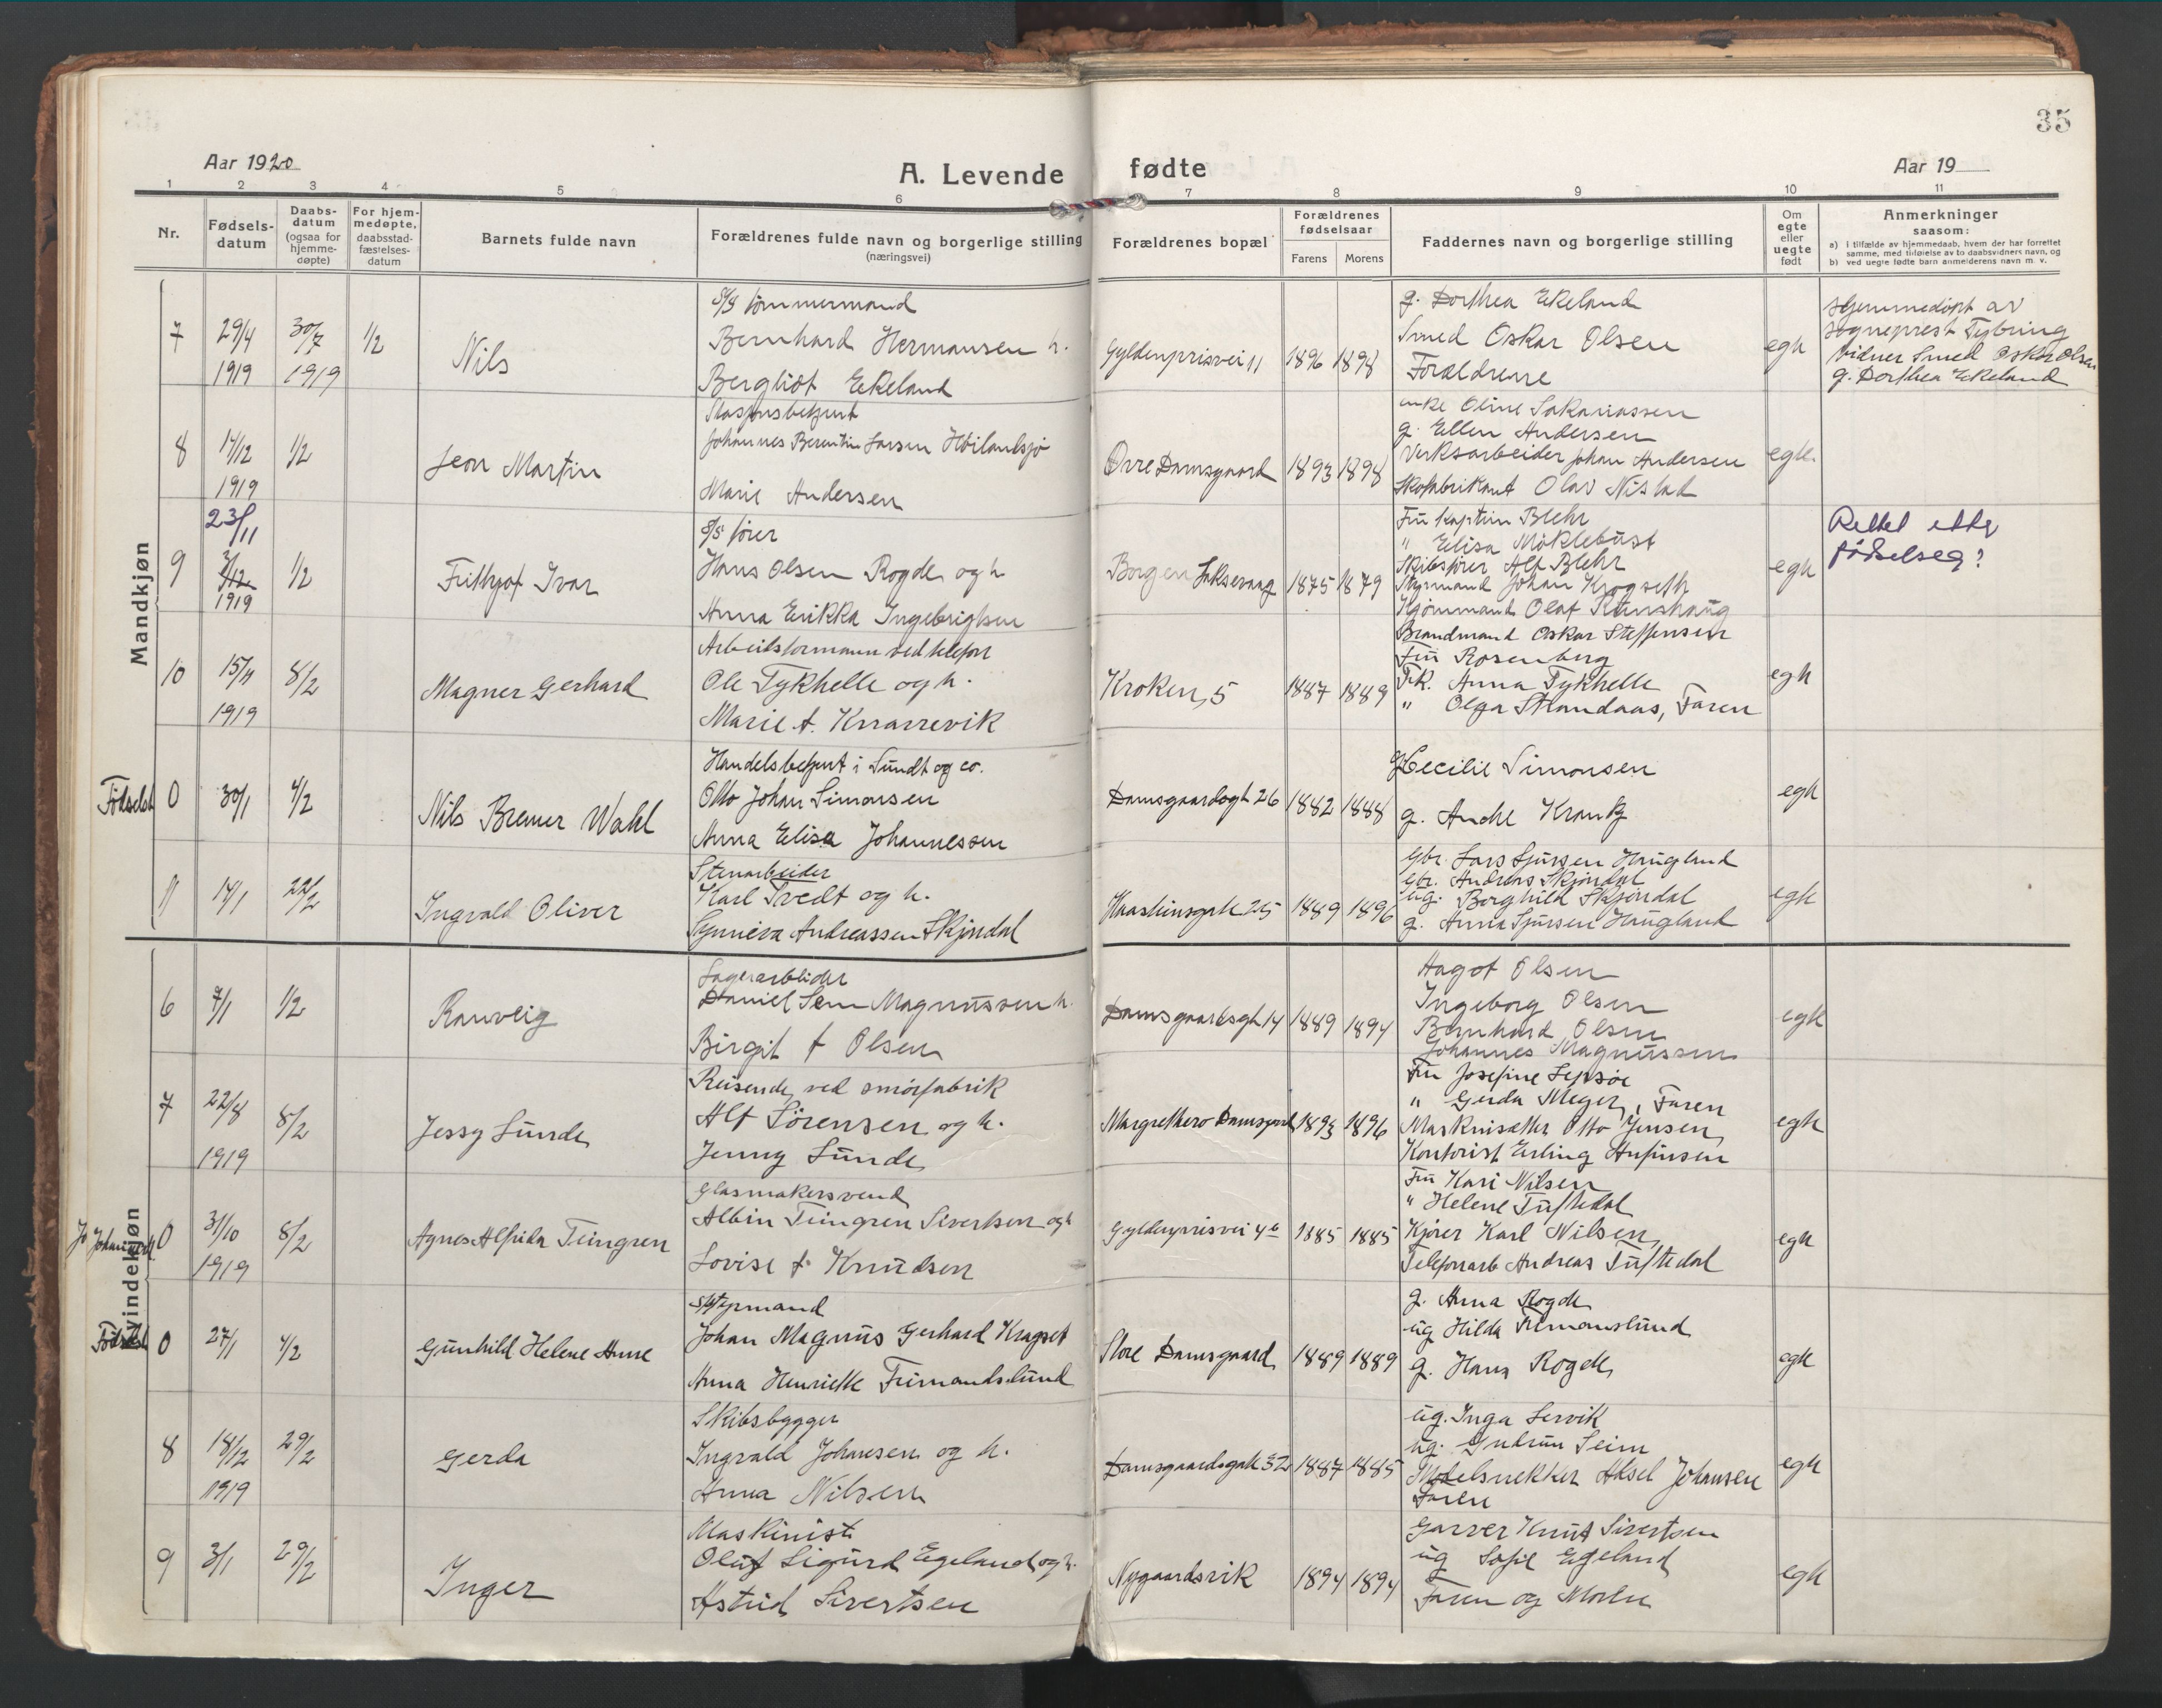 35
Aar 1920
A. Levende fødte
Aar 19
1 2 3 4 5 6 7 8 9 10 11
Nr.
Fødsels-
datum
Daabs-
datum
(ogsaa for
hjemme-
døpte)
For hjem-
medøpte,
daabsstad-
fæstelses-
datum
Barnets fulde navn
Forældrenes fulde navn og borgerlige stilling
(næringsvei)
Forældrenes bopæl
Forældrenes
fødselsaar
Farens Morens
Faddernes navn og borgerlige stilling
Om
egte
eller
uegte
født
Anmerkninger
saasom:
a) i tilfælde av hjemmedaab, hvem der har forrettet
samme, med tilføielse av to daabsvidners navn, og
b) ved uegte fødte barn anmelderens navn m. v.
Mandkjøn
7
29/4
1919
30/7
1919
1/2
Nils
S/S tømmermand
Bernhard Hermansen h.
Bergliot Ekeland
Gyldenprisvei 11
1896 1898
g. Dorthea Ekeland
Smed Oskar Olsen
Forældrene
egte
Hjemmedøpt av
sogneprest Fybring
Vidner Smed Oskar Olsen
g. Dorthea Ekeland
8
14/12
1919
1/2
Leon Martin
Stasjonsbetjent
Johannes Berentin Larsen
Marie Andersen
Øvre Damsgaard
1893 1898
enke Oline Sakariassen
g. Ellen Andersen
Verksarbeider Johan Andersen
Skofabrikant Olav Nistad
egte
9
23/11
3/12
1919
1/2
Frithjof Ivar
S/S fører
Hans Olsen Rogde og h
Anna Erikka Ingebrigtsen
Borgen Laksevaag
1875 1879
Fru Kaptein Blehr
" Elisa Møklebust
Skibsfører Alf Blehr
Styrmand Johan Krogseth
Olaf
Brandmand Oskar Steffensen
egte
Rettet etter
fødselseg?
10
15/11
1919
8/2
Magner Gerhard
Arbeidsformann ved telefon
Ole Tykhelle og h.
Marie f. Knarrevik
Kroken, 5
1887 1889
Fru Rosenberg
Frk. Anna Tykhelle
" Olga Strandaas, Faren
egte
Fødselst
0
30/1
4/2
Nils Bremer Wahl
Handelsbetjent i Sundt og co.
Otto Johan Simonsen
Anna Elisa Johannessen
Damsgaardsgt 26
1882 1888
g. Cecilie Simonsen
g. Andre Krantz
egte
11
14/1
22/2
Ingvald Oliver
Stenarbeider
Karl Tvedt og h.
Synneva Andreassen Skjøndal
25
1889 1896
Gbr. Lars Sjursen Haugland
Gbr. Andreas Skjøndal
ug. Borghild Skjøndal
g. Anna Sjursen Haugland
egte
Kvindekjøn
6
7/1
1/2
Ranveig
Lagerarbeider
Daniel Sem Magnussen h.
Birgit f Olsen
Damsgaardsgt 14
1889 1894
Hagof Olsen
Ingeborg Olsen
Bernhard Olsen
Johannes Magnussen
egte
7
22/8
1919
8/2
Jessy Sunde
Reisende ved smørfabrik
Alf Sørensen og h.
Jenny Sunde
Margrethero Damsgaard
1893 1896
Fru Josefine Lepsøe
" Gerda Meyer, Faren
Otto Jensen
Kontorist Erling
egte
0
31/10
1919
8/2
Agnes Alfrida Teingren
Glasmakersvend
Albin Teingren Sivertsen og h
Lovise f. Knudsen
Gyldenprisvei 4
1885 1885
Fru Kari Nilsen
" Helene Tuftedal
Kjører Karl Nilsen
Telefonarb Andreas Tuftedal
egte
Fødselst
0
27/1
4/2
Gunhild Helene Anne
Styrmand
Johan Magnus Gerhard Kragset
Anna Henriette Frimandslund
Store Damsgaard
1889 1889
g. Anna Rogde
ug Hilda Frimanslund
g. Hans Rogde
egte
8
18/12
1919
29/2
Gerda
Skibsbygger
Ingvald Johansen og h.
Anna Nilsen
Damsgaardsgate 32
1887 1885
ug. Inga Lervik
ug. Gudrun Seim
Modelsnekker Aksel Johansen
Faren
egte
9
3/1
29/2
Inger
Maskinist
Oluf Sigurd Egeland og h.
Astrid Sivertsen
Nygaardsvik
1894 1894
Garver Knut Sivertsen
ug Sofie Egeland
Faren og Moren
egte